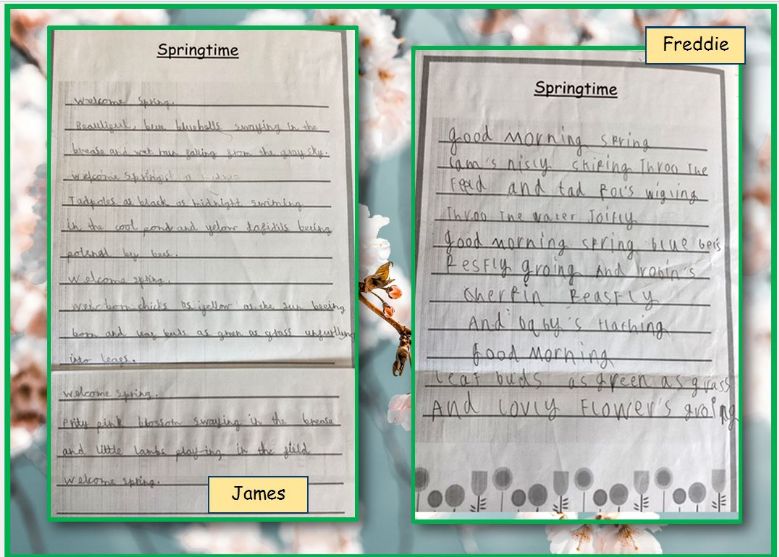 Springtime
Welcome Spring.
Beautiful, blue bluebells swaying in the
brease and wet rain falling from the gray sky.
Welcome Spring
Tadpoles as black as midnight swimming
in the cool pond and yellow dafidils beeing
by bees.
Welcome spring.
New born chicks as yellow as the sun beeing
born and leaf buds as green as grass
into leafs.
Welcome spring.
Prity pink blossom swaying in the brease
and little lambs playing in the field
Welcome spring.
James
Freddie
Springtime
good morning spring
lam's nisly skiping Throo The
Feild and tad Pol's wigling
Throo The water Joifly
good morning spring blue bels
groing And robin's
And baby's Haching
Good Morning
leaf buds as green as grass
And lovly Flower's groing